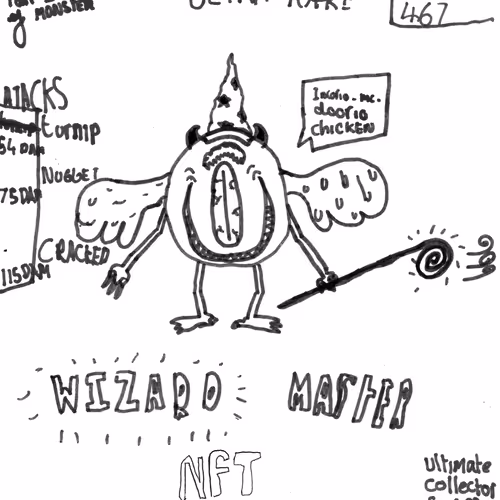 of MONSTER
ULTRA RARE
467
ATTACKS
turnip
54 DAM
NUGGET
75 DAM
CRACKED
115 DAM
doorio
CHICKEN
WIZARD MASTER
NFT
Ultimate
collector